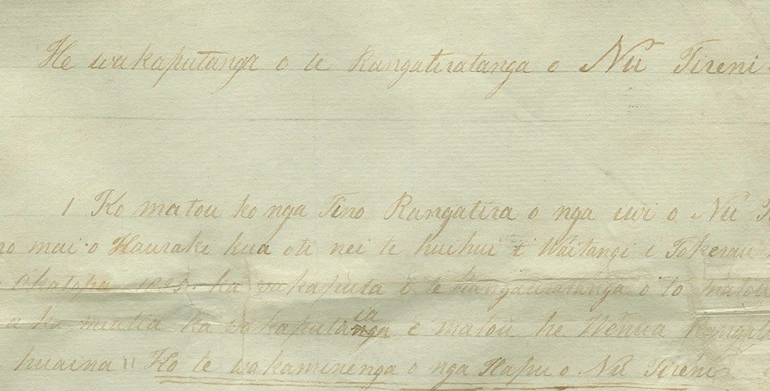 He wakaputanga o te Rangatiratanga o Nu Tireni
1 Ko matou ko nga Tino Rangatira o nga iwi o Nu
mai o Hauraki kua oti nei te huihui i Waitangi i Tokerau
1835. ka wakaputa i te Rangatiratanga o to matou
a ka meatia ka wakaputaia e matou he Wenua
huaina "Ko te wakaminenga o nga Hapu o Nu Tireni